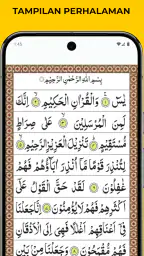 TAMPILAN PERHALAMAN
بِسْمِ اللّٰهِ الرَّحْمٰنِ الرَّحِيْمِ
يٰسۤ ۝ وَالْقُرْاٰنِ الْحَكِيْمِ ۝ اِنَّكَ
لَمِنَ الْمُرْسَلِيْنَ ۝ عَلٰى صِرَاطٍ
مُّسْتَقِيْمٍ ۝ تَنْزِيْلَ الْعَزِيْزِ الرَّحِيْمِ ۝
لِتُنْذِرَ قَوْمًا مَّآ اُنْذِرَ اٰبَآؤُهُمْ فَهُمْ
غٰفِلُوْنَ ۝ لَقَدْ حَقَّ الْقَوْلُ عَلٰٓى
اَكْثَرِهِمْ فَهُمْ لَا يُؤْمِنُوْنَ ۝ اِنَّا جَعَلْنَا
فِيْٓ اَعْنَاقِهِمْ اَغْلٰلًا فَهِيَ اِلَى الْاَذْقَانِ
فَهُمْ مُّقْمَحُوْنَ ۝ وَجَعَلْنَا مِنْۢ بَيْنِ